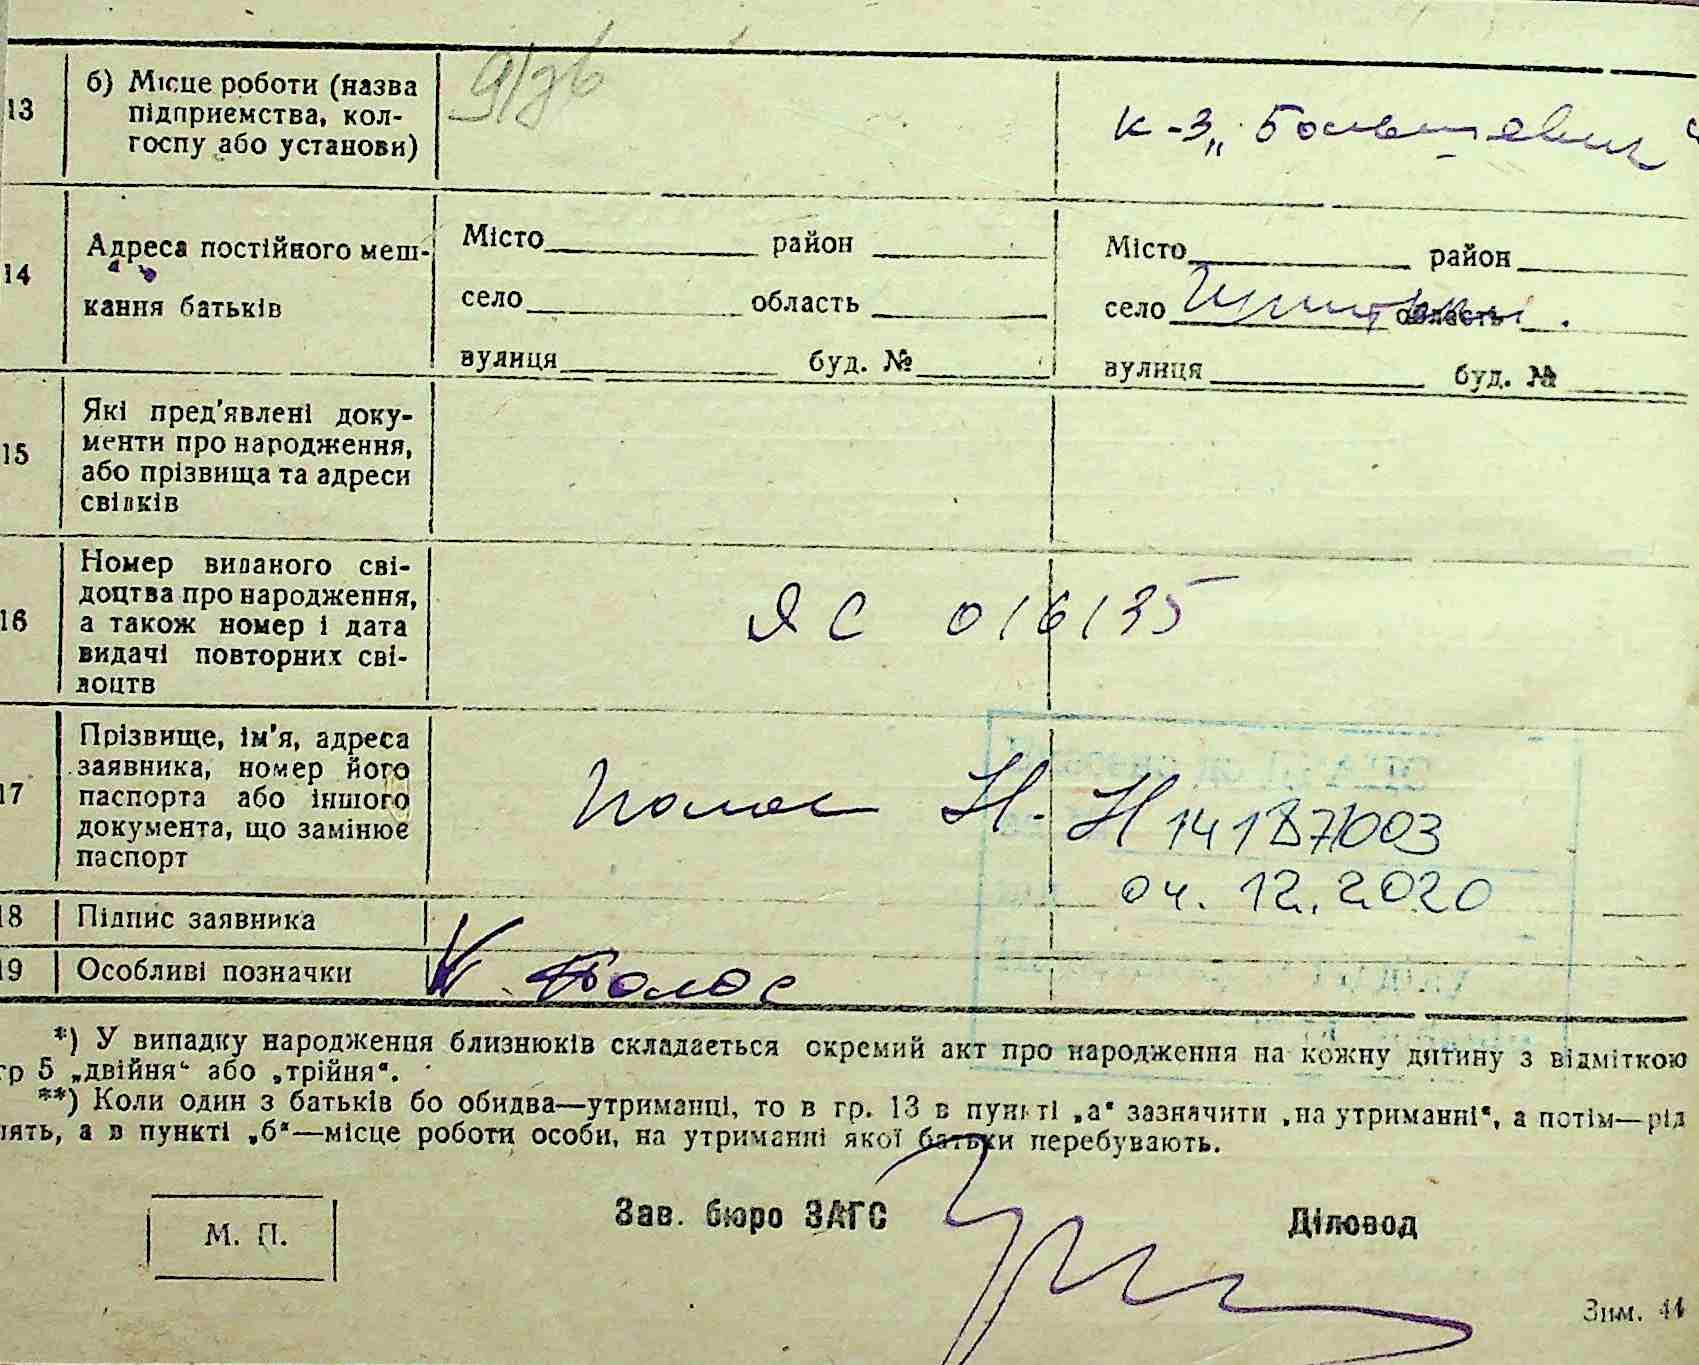 13
б) Місце роботи (назва
підприємства, кол-
госпу або установи)
к-з „Большевик“
14
Адреса постійного меш-
кання батьків
Місто район
село область
вулиця буд. №
Місто район
село область
вулиця буд. №
15
Які пред'явлені доку-
менти про народження,
або прізвища та адреси
свідків
16
Номер виданого сві-
доцтва про народження,
а також номер і дата
видачі повторних сві-
доцтв
ЯС 016135
17
Прізвище, ім'я, адреса
заявника, номер його
паспорта або іншого
документа, що замінює
паспорт
Полос Н.
04.12.2020
18
Підпис заявника
19
Особливі позначки
Полос
*) У випадку народження близнюків складається окремий акт про народження на кожну дитину з відміткою
гр 5 „двійня“ або „трійня“.
**) Коли один з батьків бо обидва—утриманці, то в гр. 13 в пункті „а“ зазначити „на утриманні“, а потім—рід
нять, а в пункті „б“—місце роботи особи, на утриманні якої батьки перебувають.
М. П.
Зав. бюро ЗАГС
Діловод
Зим. 44